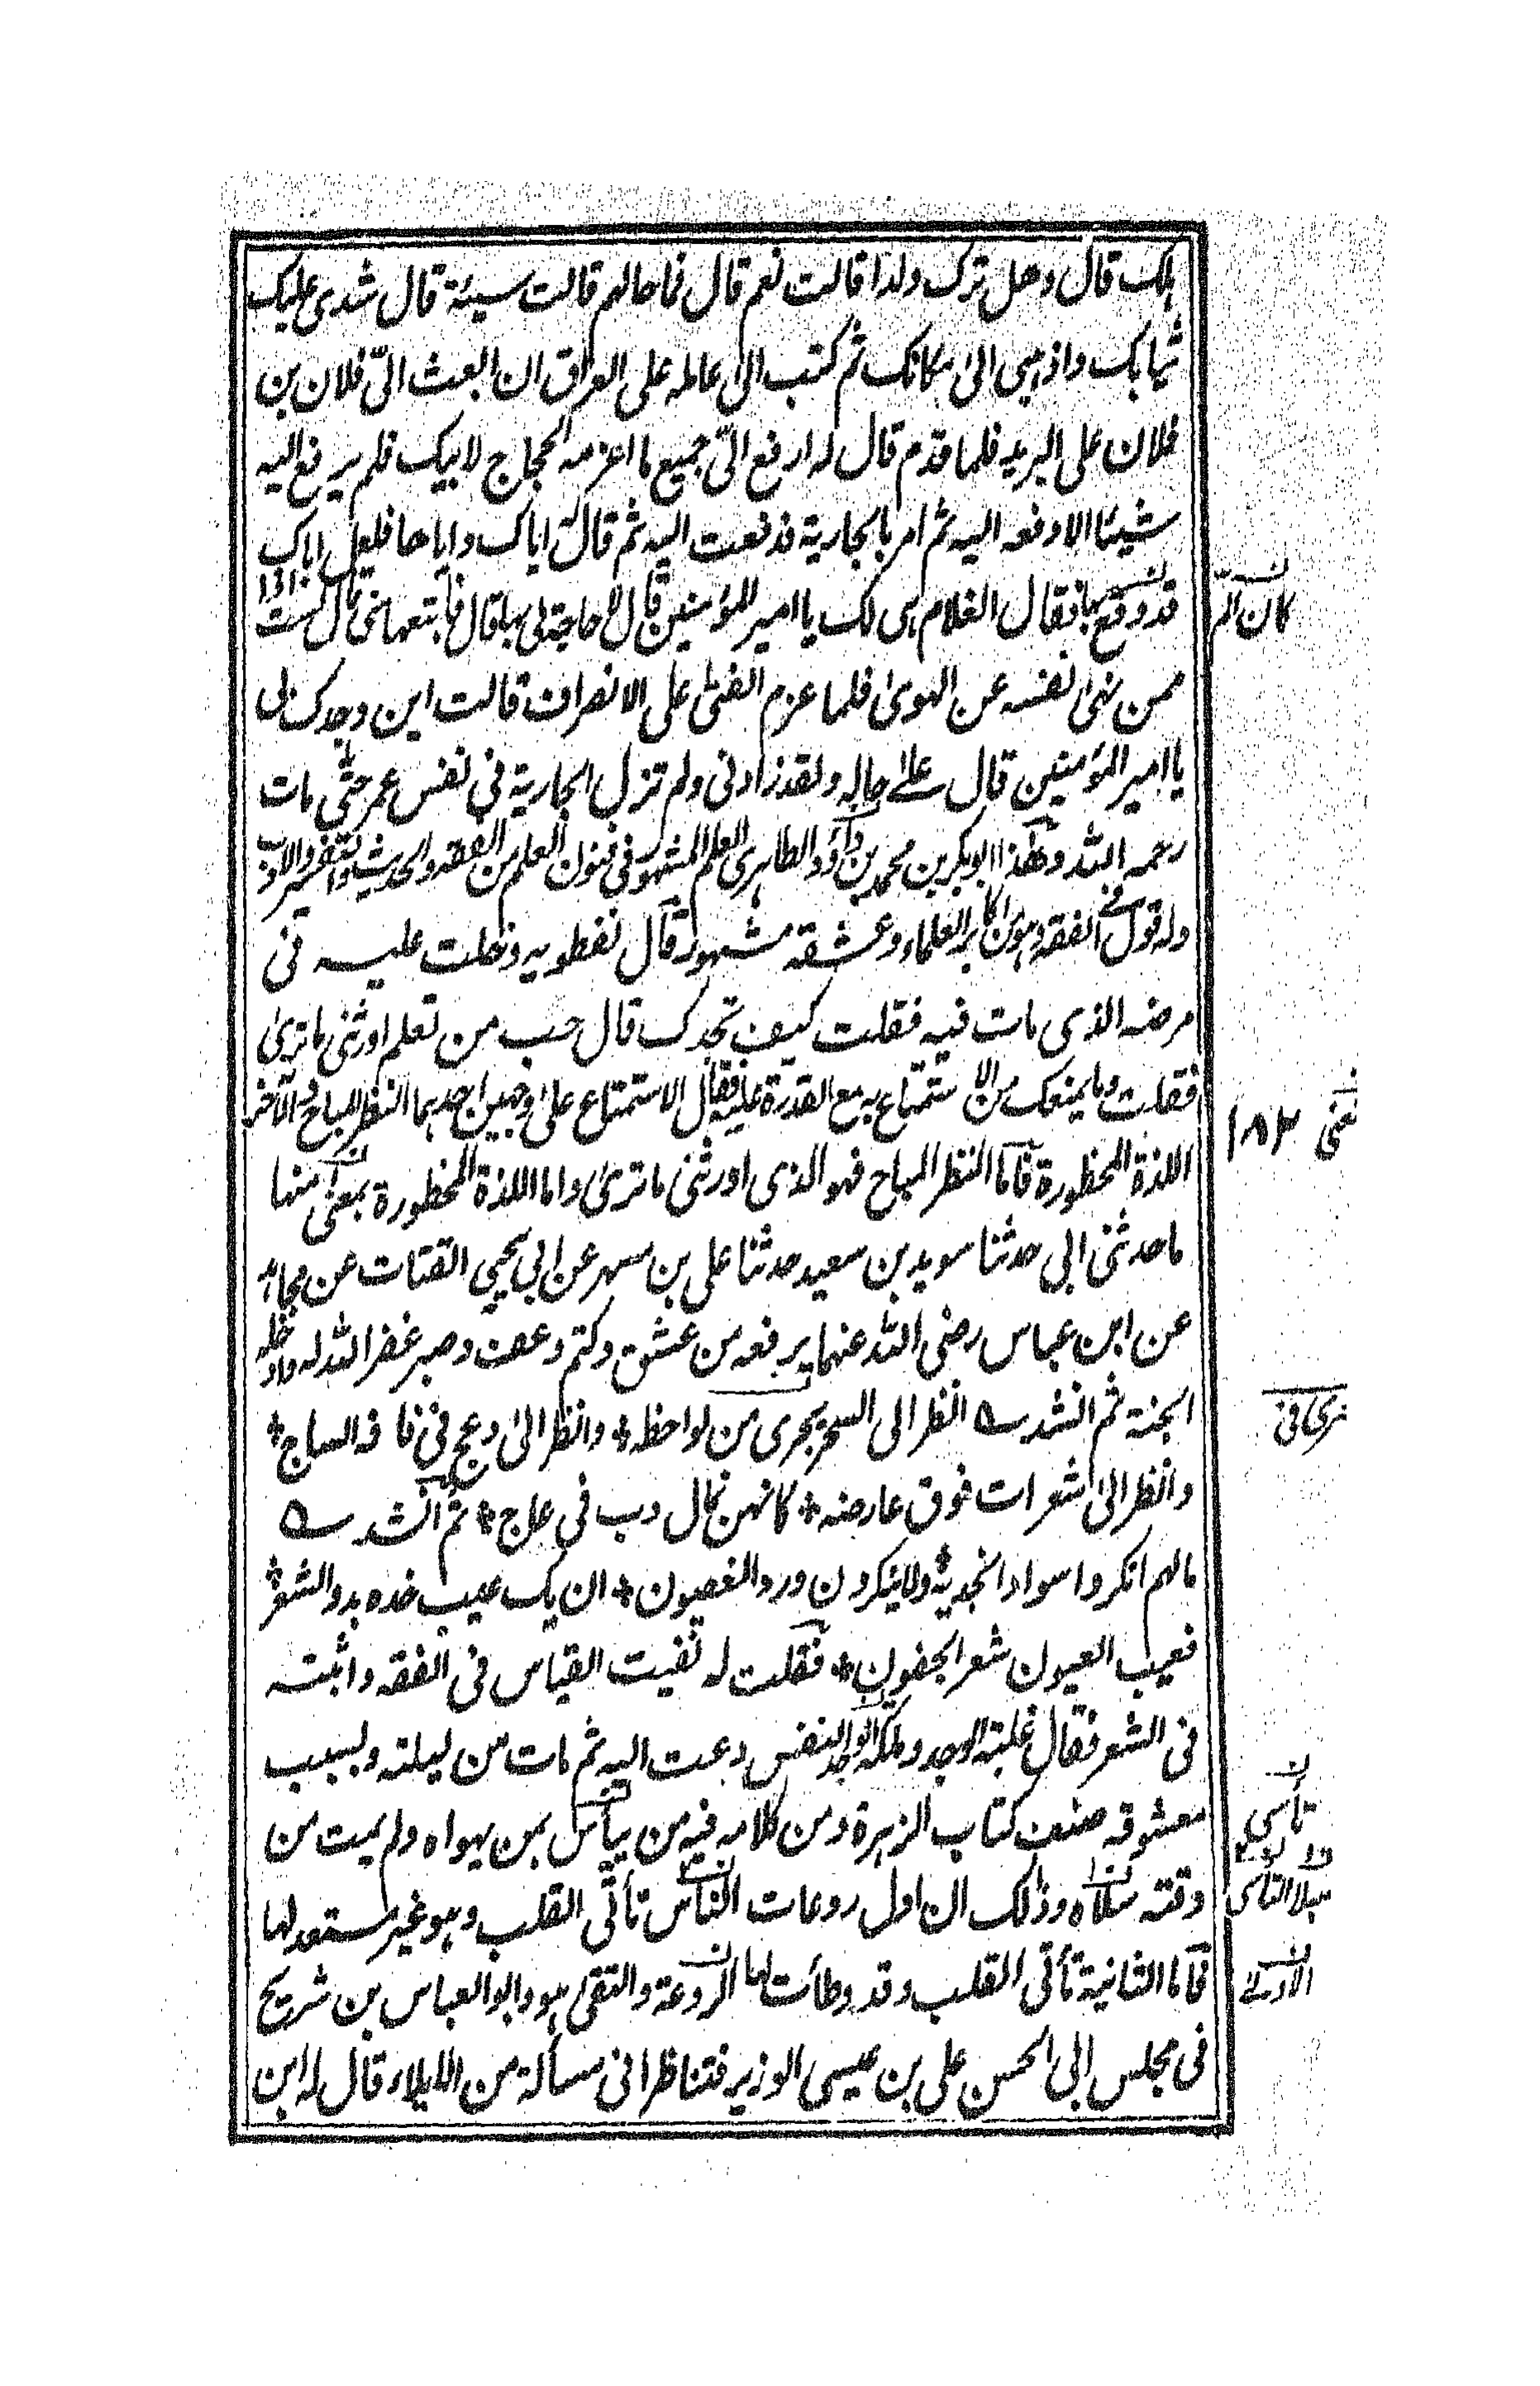 هلك قال وهل ترك ولدا قالت نعم قال فما حالهم قالت سيئة قال شدى عليك
ثيابك واذهبى الى مكانك ثم كتب الى عامله على العراق ان ابعث الىّ فلان بن
فلان على البريد فلما قدم قال له ارفع الىّ جميع ما اغرمه الحجاج لابيك فلم يرفع اليه
شيئا الا دفعه اليه ثم امر بالجارية فدفعت اليه ثم قال اياك واياها فلعل اباك
قد وقع بها فقال الغلام هى لك يا امير المؤمنين قال لا حاجة لى بها قال فابتعها منى قال لست اذا
كان الم
ممن نهى نفسه عن الهوى فلما عزم الفتى على الانصراف قالت اين وجدك لى
يا امير المؤمنين قال على حاله ولقد زادنى ولم تزل الجارية فى نفس عمر حتى مات
رحمه الله وهذا ابو بكر بن محمد بن داؤد الظاهرى العلم المشهور فى فنون العلم من الفقه والحديث والتفسير والادب
وله قول فى الفقه وهو من اكابر العلماء وعشقه مشهور قال نفطويه دخلت عليه فى
مرضه الذى مات فيه فقلت كيف تجدك قال حب من تعلم اورثنى ما ترى
فقلت وما يمنعك من الاستمتاع به مع القدرة عليه فقال الاستمتاع على وجهين احدهما النظر المباح والآخر
١٨٣
اللذة المحظورة فاما النظر المباح فهو الذى اورثنى ما ترى واما اللذة المحظورة بمعنى منها
ما حدثنى ابى حدثنا سويد بن سعيد حدثنا على بن مسهر عن ابى يحيى القتات عن مجاهد
عن ابن عباس رضى الله عنهما يرفعه من عشق وكتم وعف وصبر غفر الله له وادخله
الجنة ثم انشد انظر الى السحر يجرى من لواحظه * وانظر الى دعج فى فا فه الساج *
وانظر الى شعرات فوق عارضه * كانهن نمال دب فى عاج * ثم انشد
ما لهم انكروا سوادا بخديه ولا ينكرون ورد الغصون * ان يك عيب خده بدو الشعر *
فعيب العيون شعر الجفون * فقلت له نفيت القياس فى الفقه واثبته
فى الشعر فقال غلبة الوجد وملكة النفس دعت اليه ثم مات من ليلته وبسبب
معشوقه صنف كتاب الزهرة ومن كلامه فيه من ييأس بمن يهواه ولم يمت من
تأسى
وقته سلاه وذلك ان اول روعات الناس تأتى القلب وهو غير مستعد لها
فاما الثانية تأتى القلب وقد وطأت لها الروعة والتقى هو وابو العباس بن شريح
الاولى
فى مجلس ابى الحسن على بن عيسى الوزير فتناظرا فى مسألة من الايلاء قال له ابن